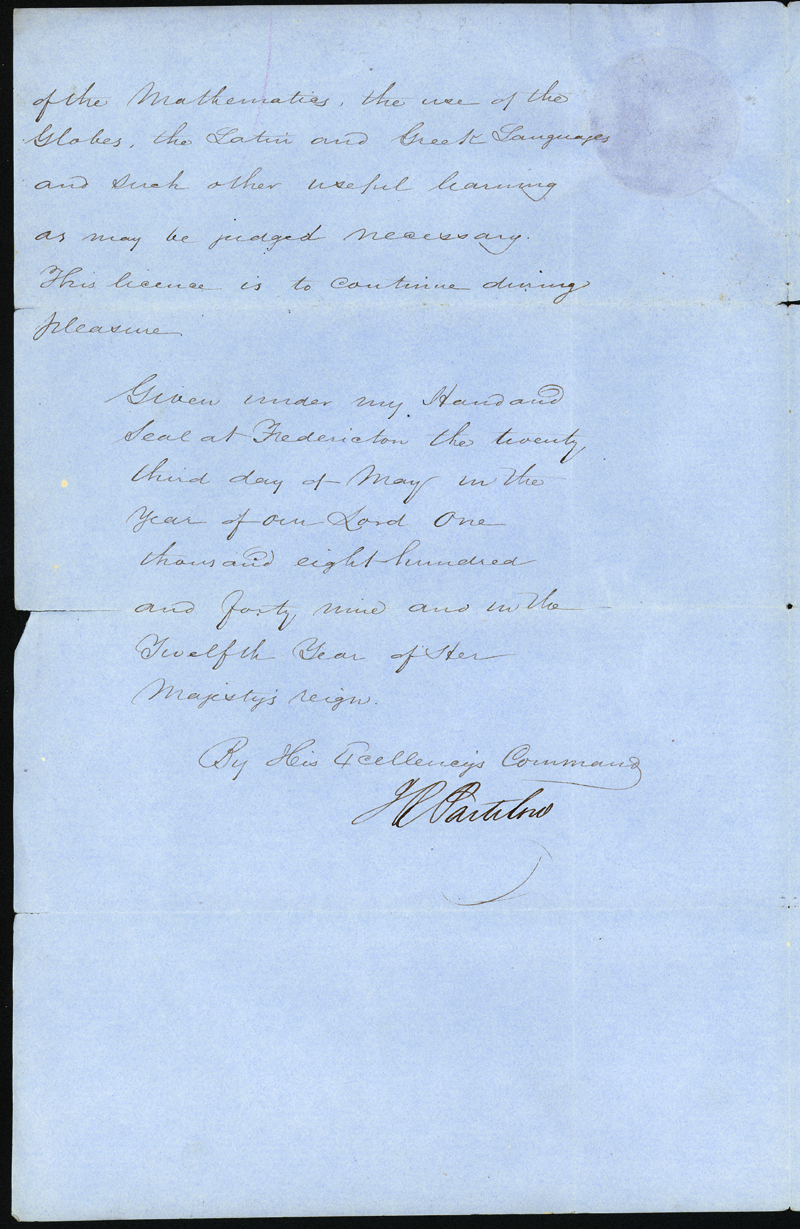 of the Mathematics, the use of the
Globes, the Latin and Greek Languages
and such other useful learning
as may be judged necessary.
This licence is to continue during
pleasure
Given under my Hand and
Seal at Fredericton the twenty
third day of May in the
Year of our Lord One
thousand eight hundred
and forty nine and in the
Twelfth Year of Her
Majesty's reign.
By His Excellency's Command
Partelow